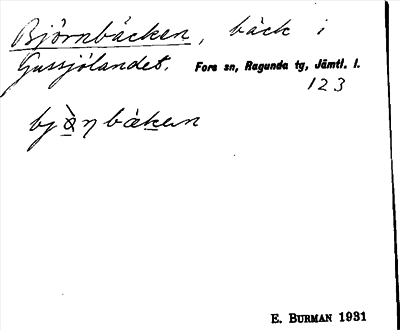 Björnbäcken, bäck i
Gussjölandet. Fors sn, Ragunda tg, Jämtl. l.
123
bjò̱ŋbäke̱n
E. BURMAN 1931